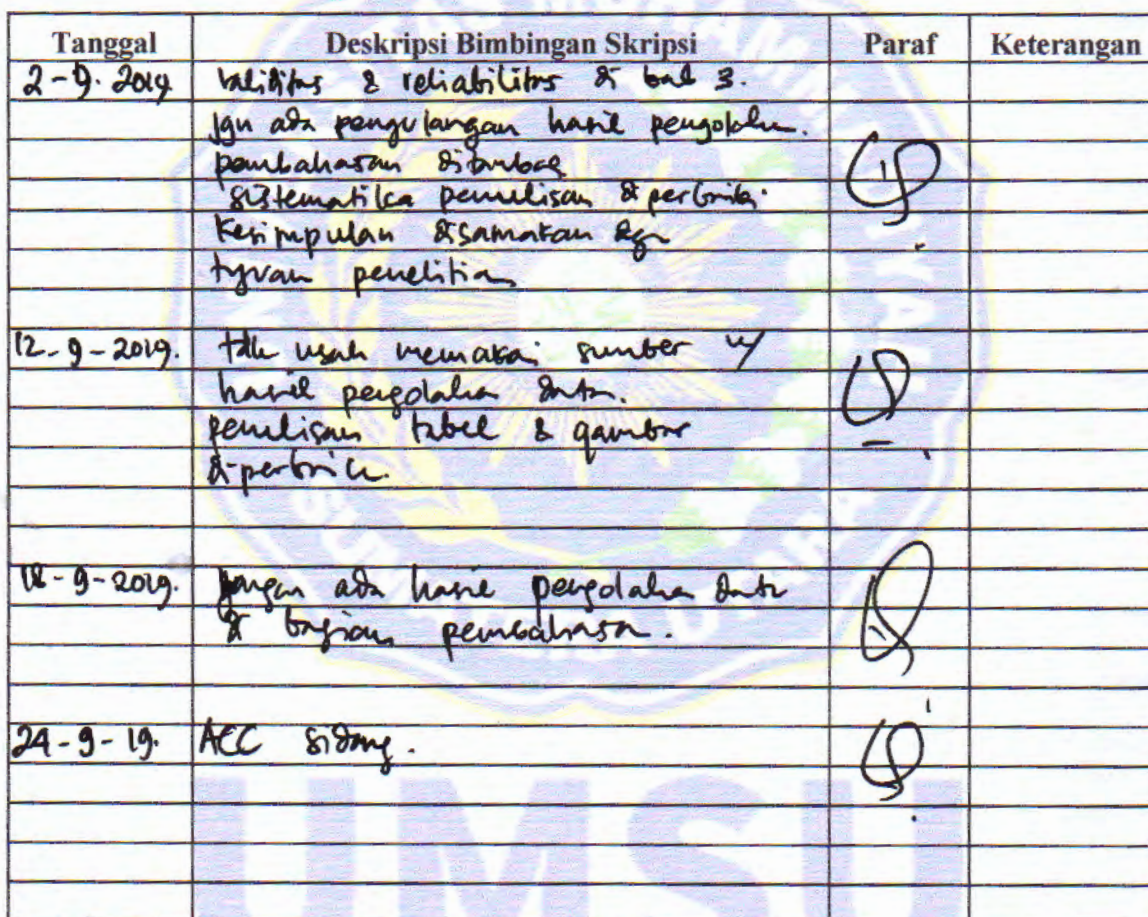 Tanggal Deskripsi Bimbingan Skripsi Paraf Keterangan
2-9-2019 validitas & reliabilitas di bab 3.
jgn ada pengulangan hasil pengolahn.
pembahasan ditambah
sistematika penulisan diperbaiki.
Kesimpulan disamakan dgn
tujuan penelitian
12-9-2019. tdk usah memakai sumber u/
hasil pengolahan data.
penulisan tabel & gambar
diperbaiki.
18-9-2019. jangan ada hasil pengolahan data
di bagian pembahasan.
24-9-19. ACC sidang.
UMSU